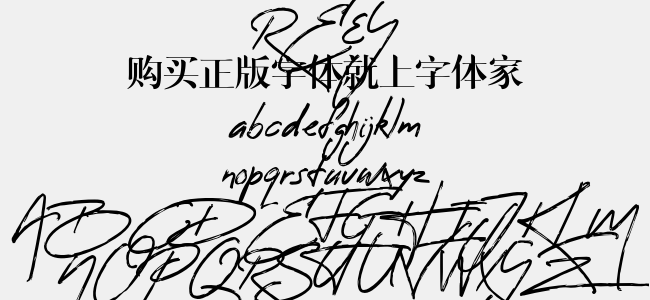 购买正版字体就上字体家
abcdefghijklm
nopqrstuvwxyz
ABCDEFGHIJKLM
NOPQRSTUVWXYZ